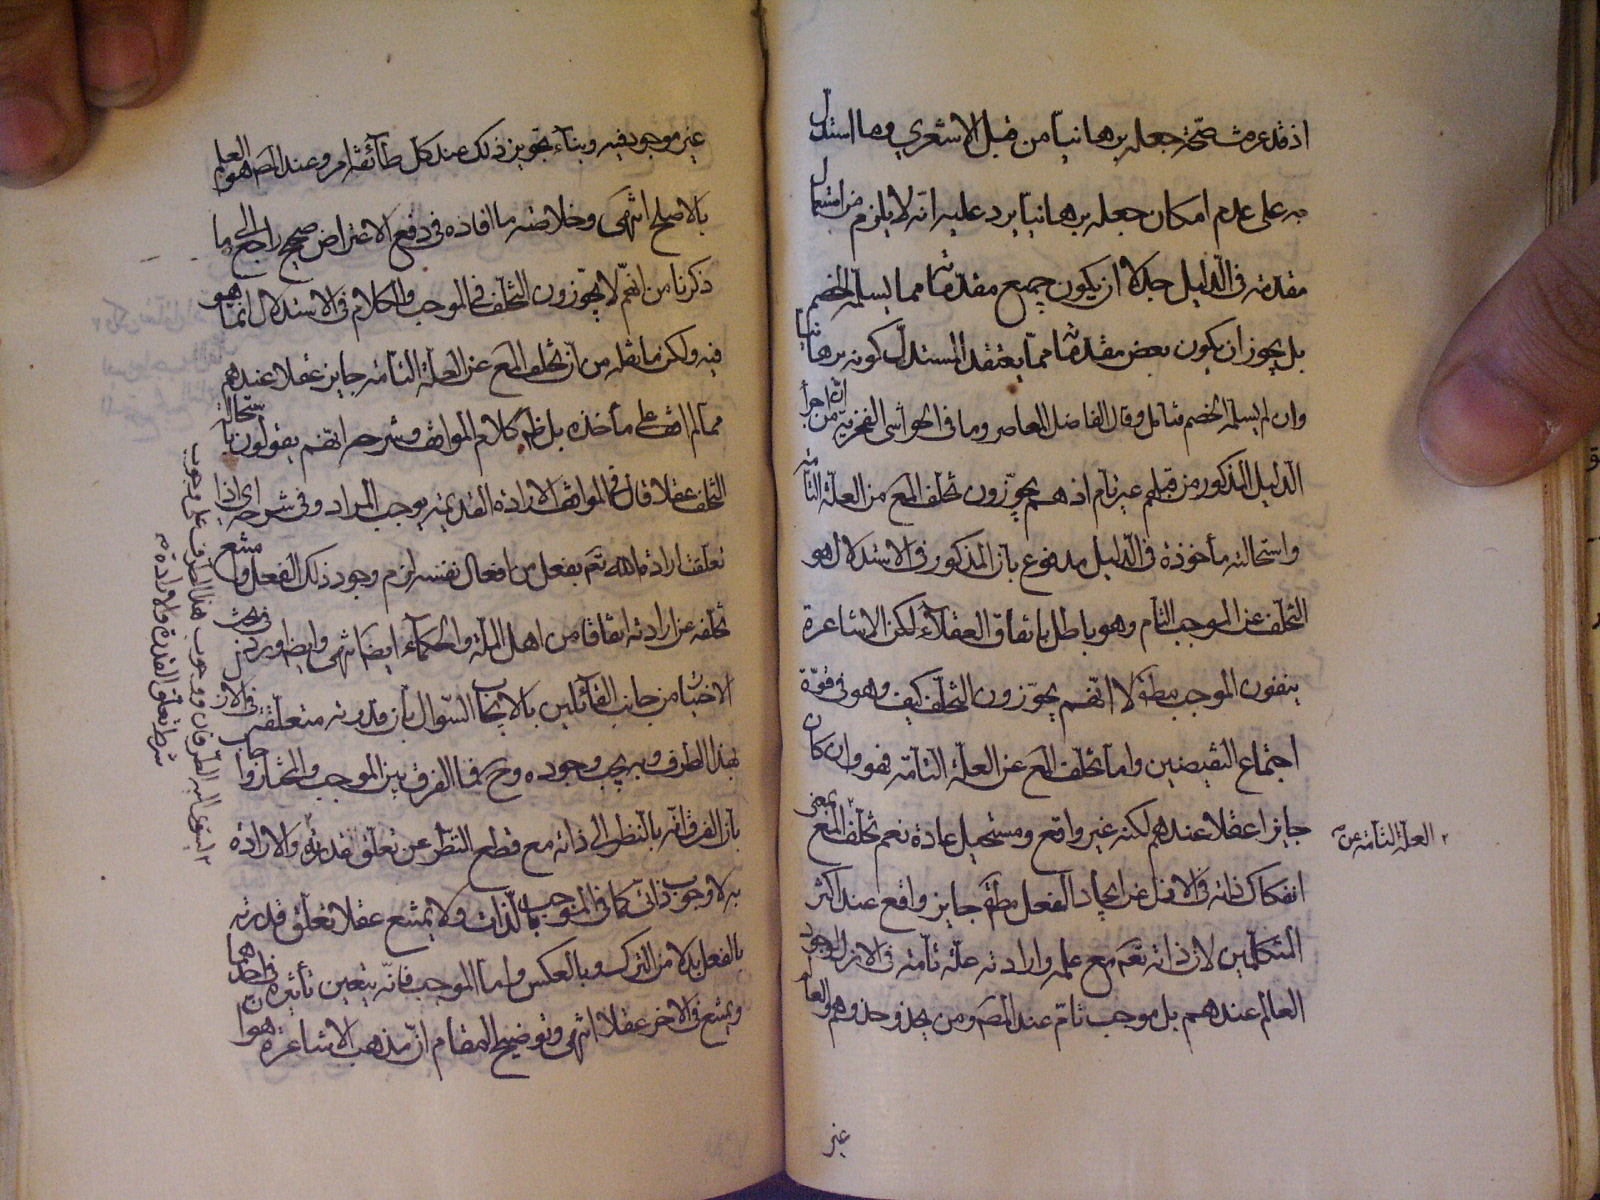 اذ قد عرفت صحة جعله برهانيا من قبل الاشعري وما استدل
به على عدم امكان جعله برهانيا يرد عليه انه لا يلزم من استعمال
مقدمة في الدليل جدلا ان يكون جميع مقدماتها مما يسلمه الخصم
بل يجوز ان يكون بعض مقدماتها مما يعتقد المستدل كونه برهانيا
وان لم يسلمه الخصم فتامل وقال الفاضل المعاصر وما في الحواشي الفخرية من ان اجراء
الدليل المذكور من قبلهم غير تام اذ هم يجوزون تخلف المع من العلة التامة
واستحالته مأخوذة في الدليل مدفوع بان المذكور في الاستدلال هو
التخلف عن الموجب التام وهو باطل باتفاق العقلاء لكن الاشاعرة
ينفون الموجب مطلقا لا انهم يجوزون التخلف كيف وهو في قوة
اجتماع النقيضين واما تخلف المع عن العلة التامة فهو وان كان
جايزا عقلا عندهم لكنه غير واقع ومستحيل عادة نعم تخلف المع بمعنى
انفكاك ذاته في الازل عن ايجاد الفعل مطلقا جايز واقع عند اكثر
المتكلمين لان ذاته تعم مع علمه وارادته علة تامة في الازل لوجود
العالم عندهم بل موجب تام عند المصـ ومن يحذو حذوهم والعالم
العلة التامة عن
غير
غير موجود فيه وبناء تجويز ذلك عند كل طائفة امر وعند المصـ هو العلم
بالاصلح انتهى وخلاصة ما افاده في دفع الاعتراض صحيح راجع الى ما
ذكرنا من انهم لا يجوزون التخلف في الموجب والكلام في الاستدلال انما هو
فيه ولكن ما نقله من ان تخلف المع عن العلة التامة جايز عقلا عندهم
مما لم اقف على مأخذه بل ظاهر كلام المواقف وشرحه انهم يقولون باستحالة
التخلف عقلا قال في المواقف الارادة القديمة توجب المراد وفي شرحه اي اذا
تعلقت ارادة الله تعم بفعل من افعال نفسه لزم وجود ذلك الفعل وامتنع
تخلفه عن ارادته اتفاقا من اهل الملة والحكماء ايضا انتهى وايضا اورد في بحث
الاختيار من جانب القائلين بالايجاب السؤال بان قدرته متعلقة في الازل
بهذا الطرف وبه يجب وجوده وح فما الفرق بين الموجب والمختار واجاب
بان الفرق انه بالنظر الى ذاته مع قطع النظر عن تعلق قدرته والارادة
به لا وجوب ذاتي كما في الموجب بالذات ولا يمتنع عقلا تعلق قدرته
بالفعل بدلا من الترك وبالعكس واما الموجب فانه يتعين تأثيره في احدهما
ويمتنع في الاخر عقلا انتهى وتوضيح المقام ان مذهب الاشاعرة هو ان
الطرفان ووجوب هذا الطرف على وجوب
شرط تعلق القدرة والارادة